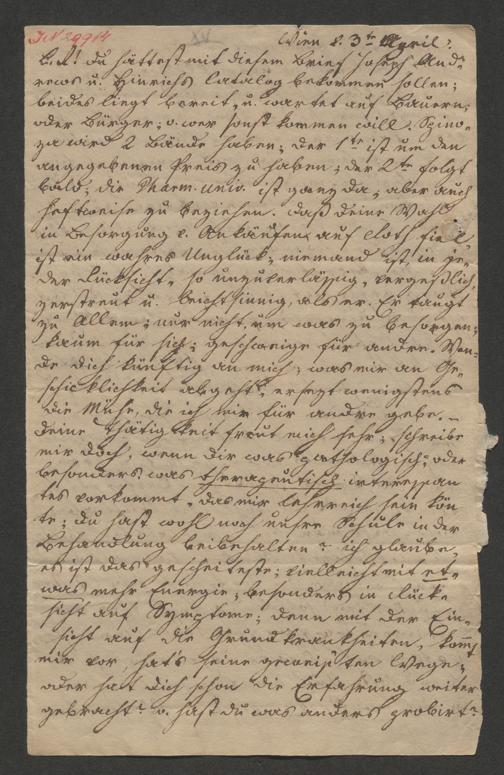 IN 29914 XV Wien d. 3ten April.
L. L! Du hättest mit diesem Brief Joseph And-
rews u. Heinrichs Catalog bekommen sollen;
beides liegt bereit, u. wartet auf Bauern,
oder Bürger; o. wer sonst kommen will. Spino-
za wird 2 Bände haben; der 1te ist um den
angegebenen Preis zu haben; der 2te folgt
bald; die Pharm. univ. ist ganz da, aber auch
heftweise zu beziehen. Daß Deine Wahl
in Besorgung d. Ankäufe auf Cloth fiel,
ist ein wahres Unglück; niemand ist in je-
der Rücksicht so unzuverlässig, vergeßlich
zerstreut u. leichtsinnig, als er. Er taugt
zu Allem; nur nicht, um was zu besorgen;
kaum für sich; geschweige für andre. Wen-
de dich künftig an mich; was mir an Ge-
schicklichkeit abgeht, ersezt wenigstens
die Mühe, die ich mir für andre gebe. –
Deine Thätigkeit freut mich sehr; schreibe
mir doch, wenn dir was pathologisch- oder
besonders was therapeutisch interessan-
tes vorkommt, das mir lehrreich sein kön-
te; Du hast wohl noch unsre Schule in der
Behandlung beibehalten? ich glaube,
es ist das gescheiteste; vielleicht mit et-
was mehr Energie; besonders in Rück-
sicht auf Symptome; denn mit der Ein-
sicht auf die Grundkrankheiten, kommt
mir vor, hat's seine geweisten Wege;
oder hat dich schon die Erfahrung weiter
gebracht? o. hast du was anders probirt?